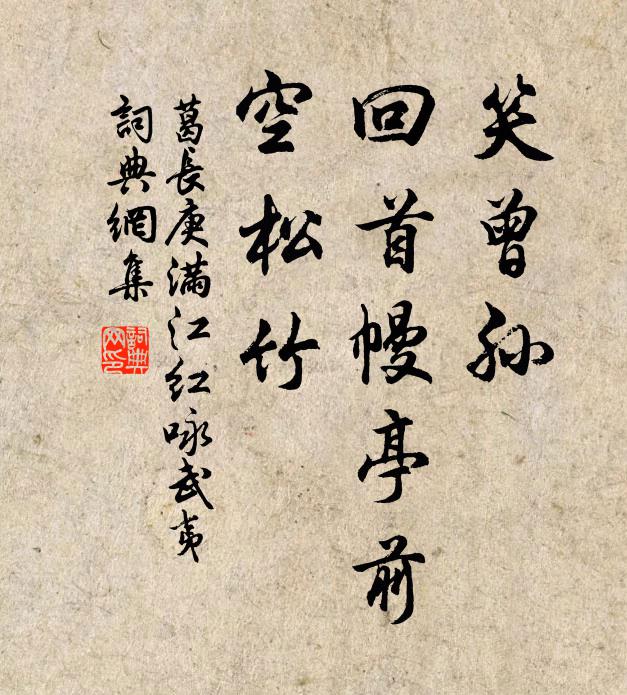 笑曾孙
回首幔亭前
空松竹
葛長庚满江红咏武夷
詞典網集
詞典
网印